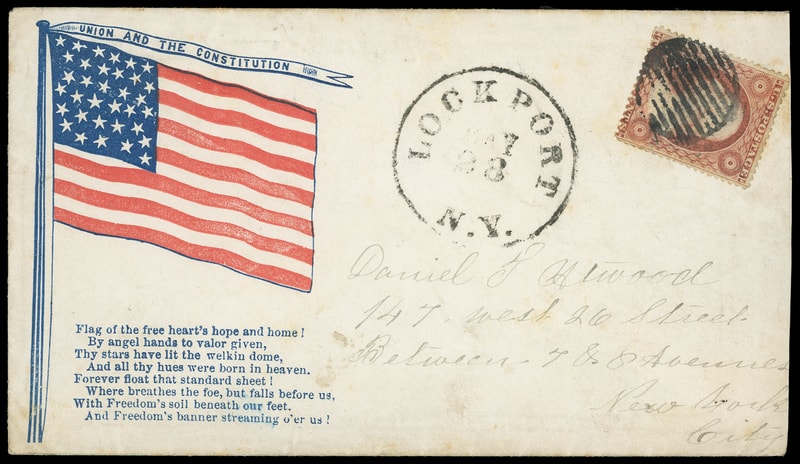 UNION AND THE CONSTITUTION
LOCKPORT
MAY
28
N.Y.
Flag of the free heart's hope and home!
By angel hands to valor given,
Thy stars have lit the welkin dome,
And all thy hues were born in heaven.
Forever float that standard sheet!
Where breathes the foe, but falls before us,
With Freedom's soil beneath our feet.
And Freedom's banner streaming o'er us!
Daniel Atwood
147 west 26 Street
Between 7 & 8 Avenues
New York
City